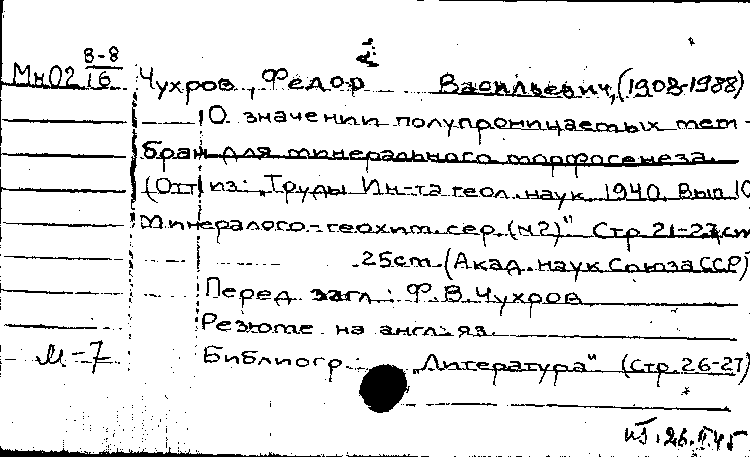 В-8
МнО2 16 Чухров, Федор Васильевич, (1908-1988)
О значении полупроницаемых мем-
бран для минерального морфогенеза.
(Отт из: „Труды Ин-та геол. наук. 1940. Вып 10
Минералого-геохим. сер. (№2)" Стр. 21-27 ст
25 cm. (Акад. наук Союза ССР)
Перед загл.: Ф.В. Чухров
Резюме на англ. яз.
М-7 Библиогр.: „Литература" (стр. 26-27)
26.II.45